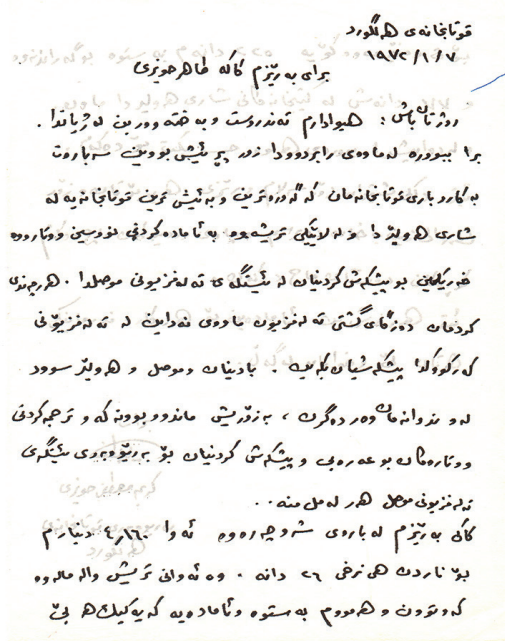 قوتابخانەی هەڵگورد
١٩٧٢/١/٧
برای بەڕێزم کاکە طاهر حویزی
ڕۆژتان باش: هیوادارم تەندروست و بەختەوەربن لە ژیاندا.
برا ببوورە لە ماوەی ڕابردوودا زۆر پڕ ئیش بووین سەبارەت
بە کاروباری قوتابخانەمان کە گەورەترین و بەئیش ترین قوتابخانەیە لە
شاری هەولێردا و لە لایێکی تریشەوە بە ئامادەکردنی نووسین و وتارەوە
خەریکین بۆ پێشکەش کردنیان لە ئێستگەی تەلەفزیونی موصلدا. هەرچەندی
کردمان دەزگای گشتی تەلەفزیون ماوەی نەداین لە تەلەفزیۆنی
کەرکووکدا پێشکەشیان بکەین. بادینان و موصل و هەولێر سوود
لەو بڕوانامان وەردەگرن، بەزۆریش ماندوو بوونەکە و ترجمەکردنی
ووتارەکان بۆ عەرەبی و پێشکەش کردنیان بۆ بەڕێوەبەری ئێستگەی
تەلەفزیونی موصل هەر لەمل منە..
کاکی بەڕێزم لەبارەی شەوچەرەوە ئەوا ٤٫١٦٠ دینارم
بۆ ناردن هی نرخی ٢٦ دانە. وە ئەوانی تریش والە مالەوە
کەوتوون و هەمووم بەستوە و ئامادەیە کە یەکێک هەبێ